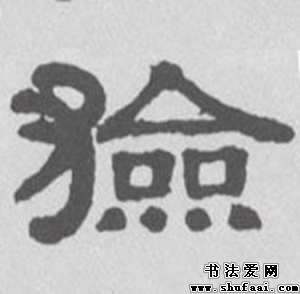 獫
书法爱网
www.shufaai.com